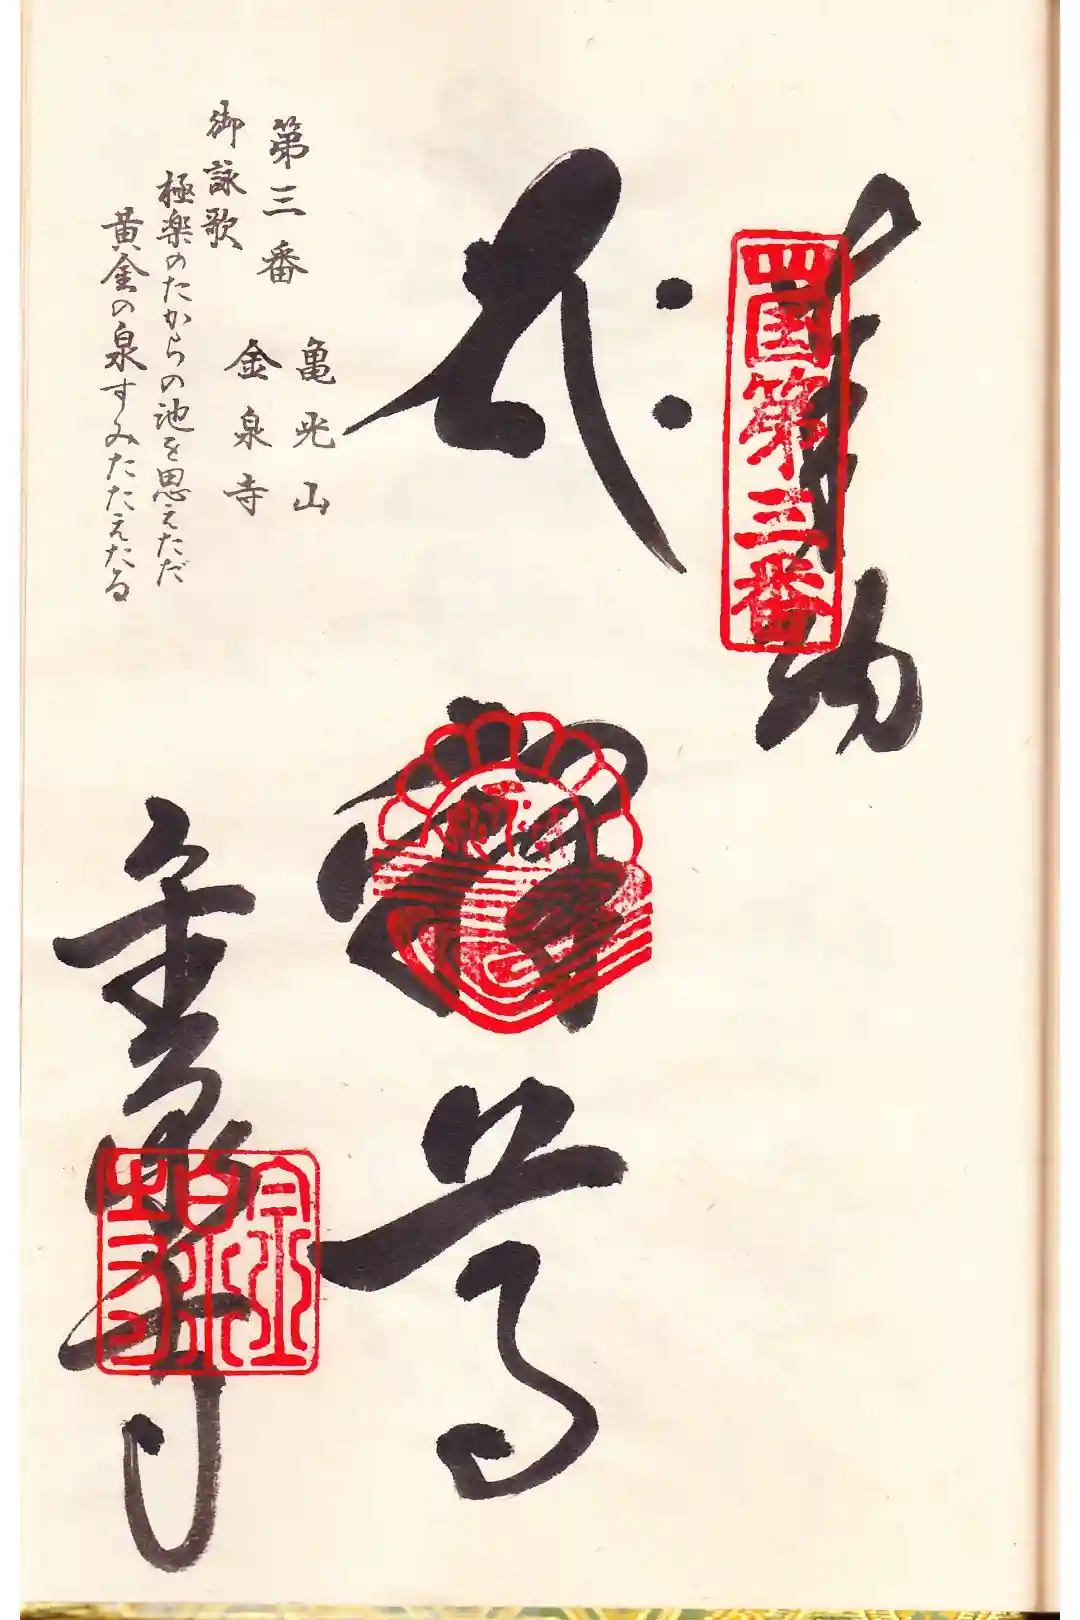 奉納
四国第三番
釋尊
金泉寺
金泉寺
第三番
亀光山
金泉寺
御詠歌
極楽のたからの池を思えただ
黄金の泉すみたたえたる